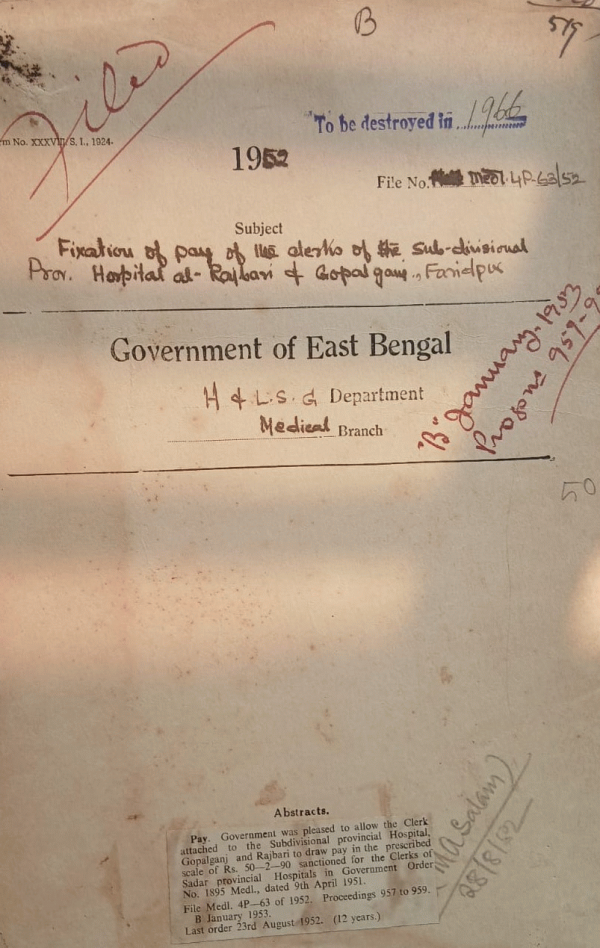 B
579
Filed
To be destroyed in 1966
m No. XXXVIII/S. I., 1924.
1952
File No. Medl. 4P-63/52
Subject
Fixation of pay of the clerks of the Sub-divisional
Prov. Hospital at Rajbari & Gopalganj, Faridpur
Government of East Bengal
H & L.S.G Department
Medical Branch
"B" January, 1953
959-9
50
Abstracts.
Pay. Government was pleased to allow the Clerk
attached to the Subdivisional provincial Hospital,
Gopalganj and Rajbari to draw pay in the prescribed
scale of Rs. 50—2—90 sanctioned for the Clerks of
Sadar provincial Hospitals in Government Order
No. 1895 Medl., dated 9th April 1951.
File Medl. 4P—63 of 1952. Proceedings 957 to 959.
B January 1953.
Last order 23rd August 1952. (12 years.)
MA Salam
28/8/52